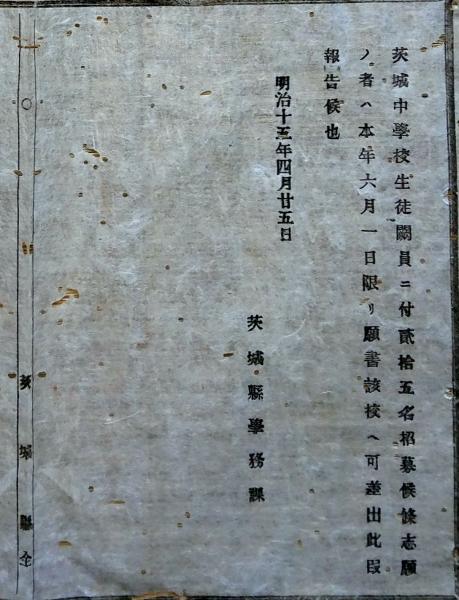 茨城中學校生徒闕員ニ付貳拾五名招募候條志願
ノ者ハ本年六月一日限リ願書該校ヘ可差出此段
報告候也
明治十五年四月廿五日
茨城縣學務課
茨城縣